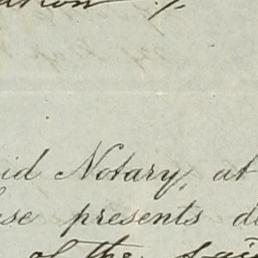 id Notary, at
se presents d
of the sai